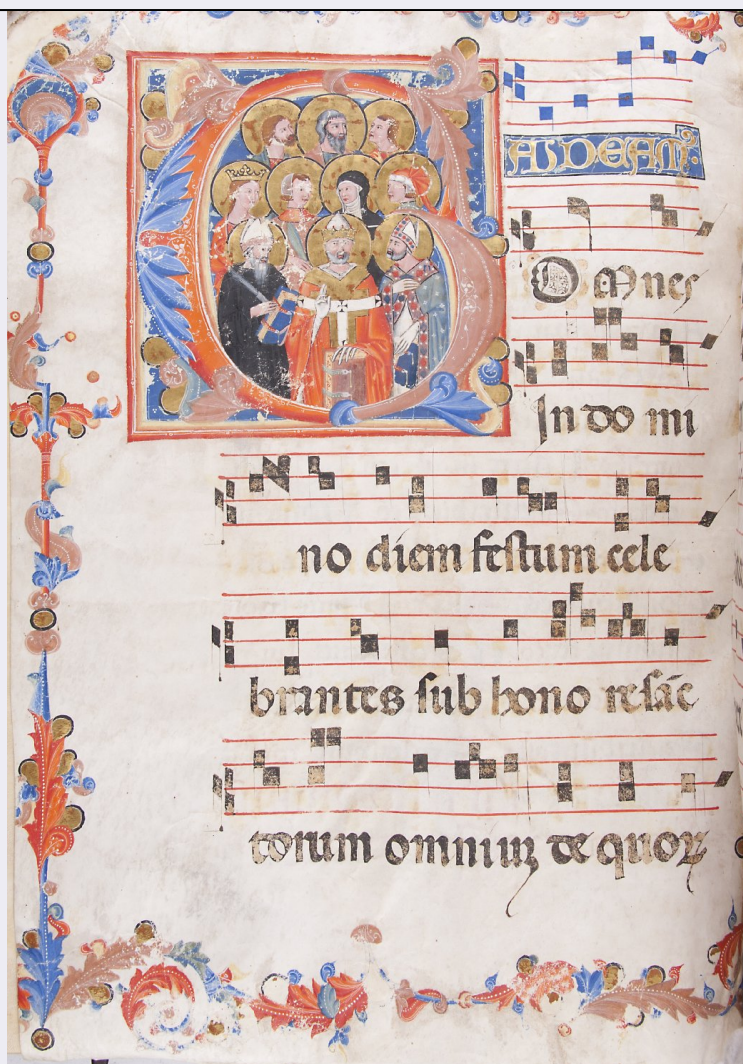 GAUDEAMꝰ
Omnes
In do mi
no diem festum cele
brantes sub hono re sāc
torum omniuꝫ de quoꝝ